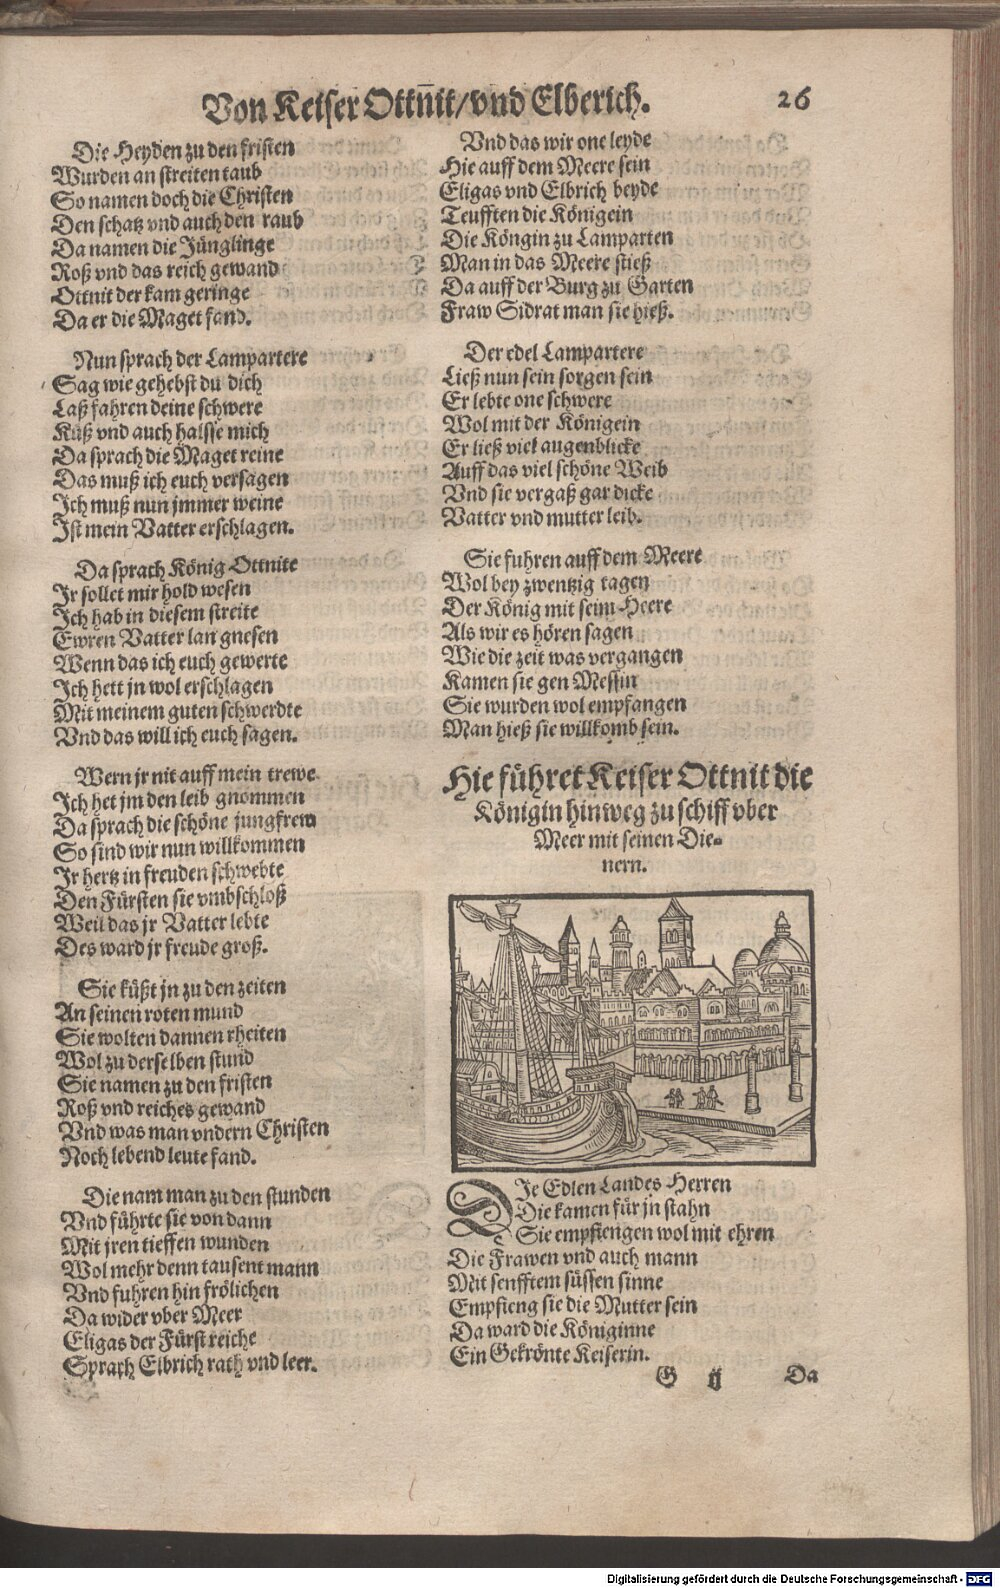 Von Keiser Ottñit/ vnd Elberich. 26
Die Heyden zu den fristen
Wurden an streiten taub
So namen doch die Christen
Den schatz vnd auch den raub
Da namen die Jünglinge
Roß vnd das reich gewand
Ottnit der kam geringe
Da er die Maget fand.
Nun sprach der Lampartere
Sag wie gehebst du dich
Laß fahren deine schwere
Küß vnd auch halsse mich
Da sprach die Maget reine
Das muß ich euch versagen
Ich muß nun jmmer weine
Ist mein Vatter erschlagen.
Da sprach König Ottnite
Jr sollet mir hold wesen
Ich hab in diesem streite
Ewren Vatter lan gnesen
Wenn das ich euch gewerte
Ich hett jn wol erschlagen
Mit meinem guten schwerdte
Vnd das will ich euch sagen.
Wern jr nit auff mein trewe
Ich het jm den leib gnommen
Da sprach die schöne jungfrew
So sind wir nun willkommen
Jr hertz in freuden schwebte
Den Fürsten sie vmbschloß
Weil das jr Vatter lebte
Des ward jr freude groß.
Sie küßt jn zu den zeiten
An seinen roten mund
Sie wolten dannen rheiten
Wol zu derselben stund
Sie namen zu den fristen
Roß vnd reiches gewand
Vnd was man vndern Christen
Noch lebend leute fand.
Die nam man zu den stunden
Vnd führte sie von dann
Mit jren tieffen wunden
Wol mehr denn tausent mann
Vnd fuhren hin frölichen
Da wider vber Meer
Eligas der Fürst reiche
Sprach Elbrich rath vnd leer.
Vnd das wir one leyde
Hie auff dem Meere sein
Eligas vnd Elbrich beyde
Teufften die Königein
Die Köngin zu Lamparten
Man in das Meere stieß
Da auff der Burg zu Garten
Fraw Sidrat man sie hieß.
Der edel Lampartere
Ließ nun sein sorgen sein
Er lebte one schwere
Wol mit der Königein
Er ließ viel augenblicke
Auff das viel schöne Weib
Vnd sie vergaß gar dicke
Vatter vnd mutter leib.
Sie fuhren auff dem Meere
Wol bey zwentzig tagen
Der König mit seim Heere
Als wir es hören sagen
Wie die zeit was vergangen
Kamen sie gen Messin
Sie wurden wol empfangen
Man hieß sie willkomb sein.
Hie führet Keiser Ottnit die
Königin hinweg zu schiff vber
Meer mit seinen Die=
nern.
DIe Edlen Landes Herren
Die kamen für jn stahn
Sie empfiengen wol mit ehren
Die Frawen vnd auch mann
Mit senfftem süssen sinne
Empfieng sie die Mutter sein
Da ward die Königinne
Ein Gekrönte Keiserin.
G ij Da
Digitalisierung gefördert durch die Deutsche Forschungsgemeinschaft - DFG